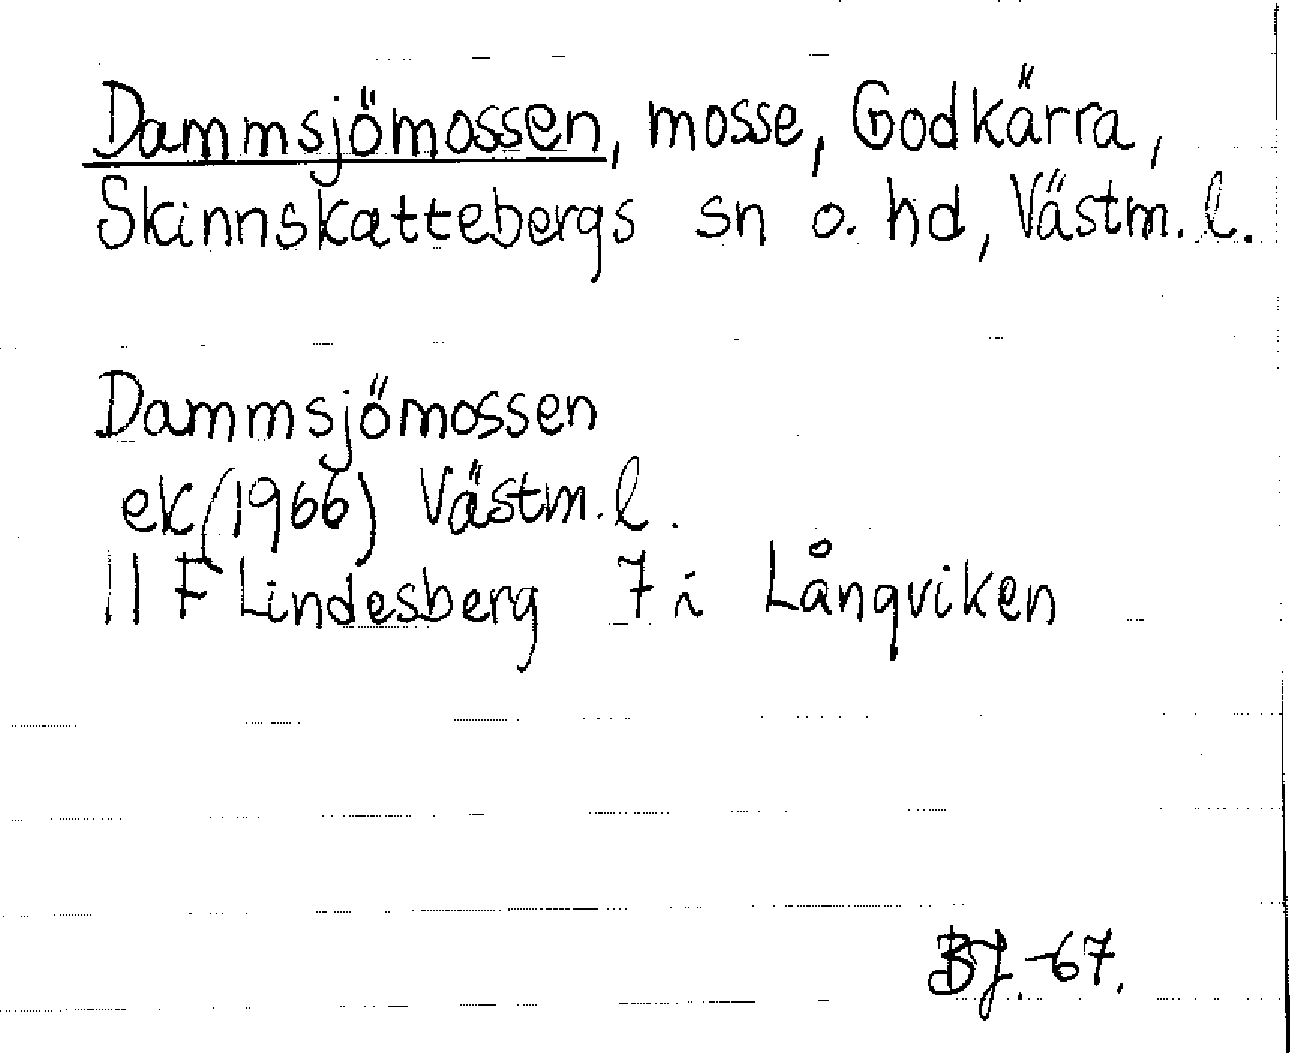 Dammsjömossen, mosse, Godkärra,
Skinnskattebergs sn o. hd, Västm. l.
Dammsjömossen
ek (1966) Västm. l.
11 F Lindesberg 7 i Långviken
BJ. -67.